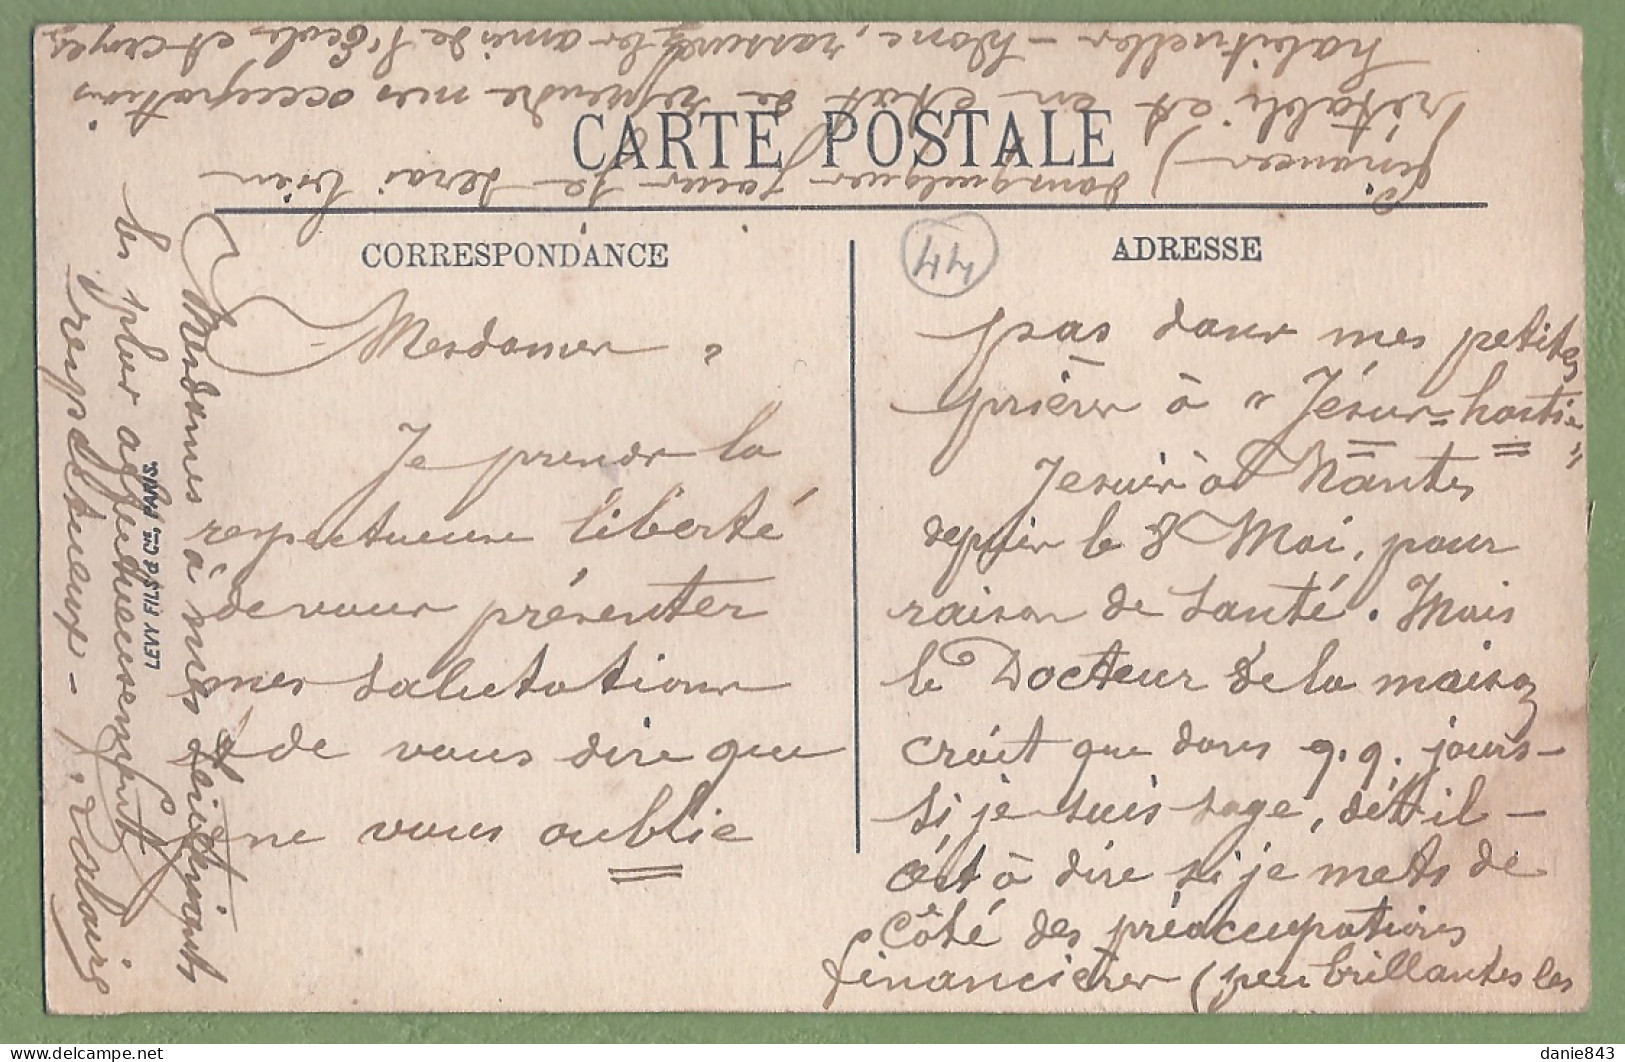 CARTE POSTALE
CORRESPONDANCE
ADRESSE
44
Mesdames,
Je prends la
respectueuse liberté
de vous présenter
mes salutations
& de vous dire que
je ne vous oublie
pas dans mes petites
prières à "Jésus-hostie"
Je suis à Nantes
depuis le 8 Mai, pour
raison de santé. Mais
le Docteur de la maison
croit que dans q.q. jours -
si je suis sage, dit-il -
c'est à dire si je mets de
côté des préoccupations
financières (peu brillantes les
finances) dans quelques jours je serai bien
rétabli et en état de reprendre mes occupations
habituelles - Donc, rassurez les amis de l'École et croyez
Mesdames à mes sentiments
les plus affectueusement
respectueux -
LEVY FILS & Cie, PARIS.